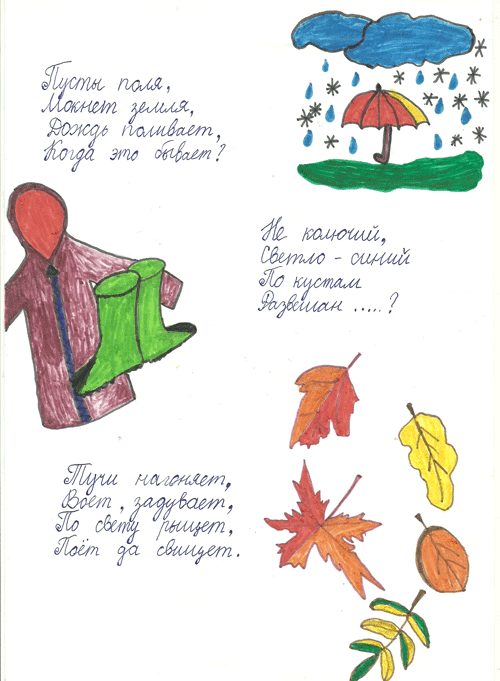 Пусты поля,
Мокнет земля,
Дождь поливает,
Когда это бывает?
Не колючий,
Светло - синий
По кустам
Развешан .....?
Тучи нагоняет,
Воет, задувает,
По свету рыщет,
Поёт да свищет.